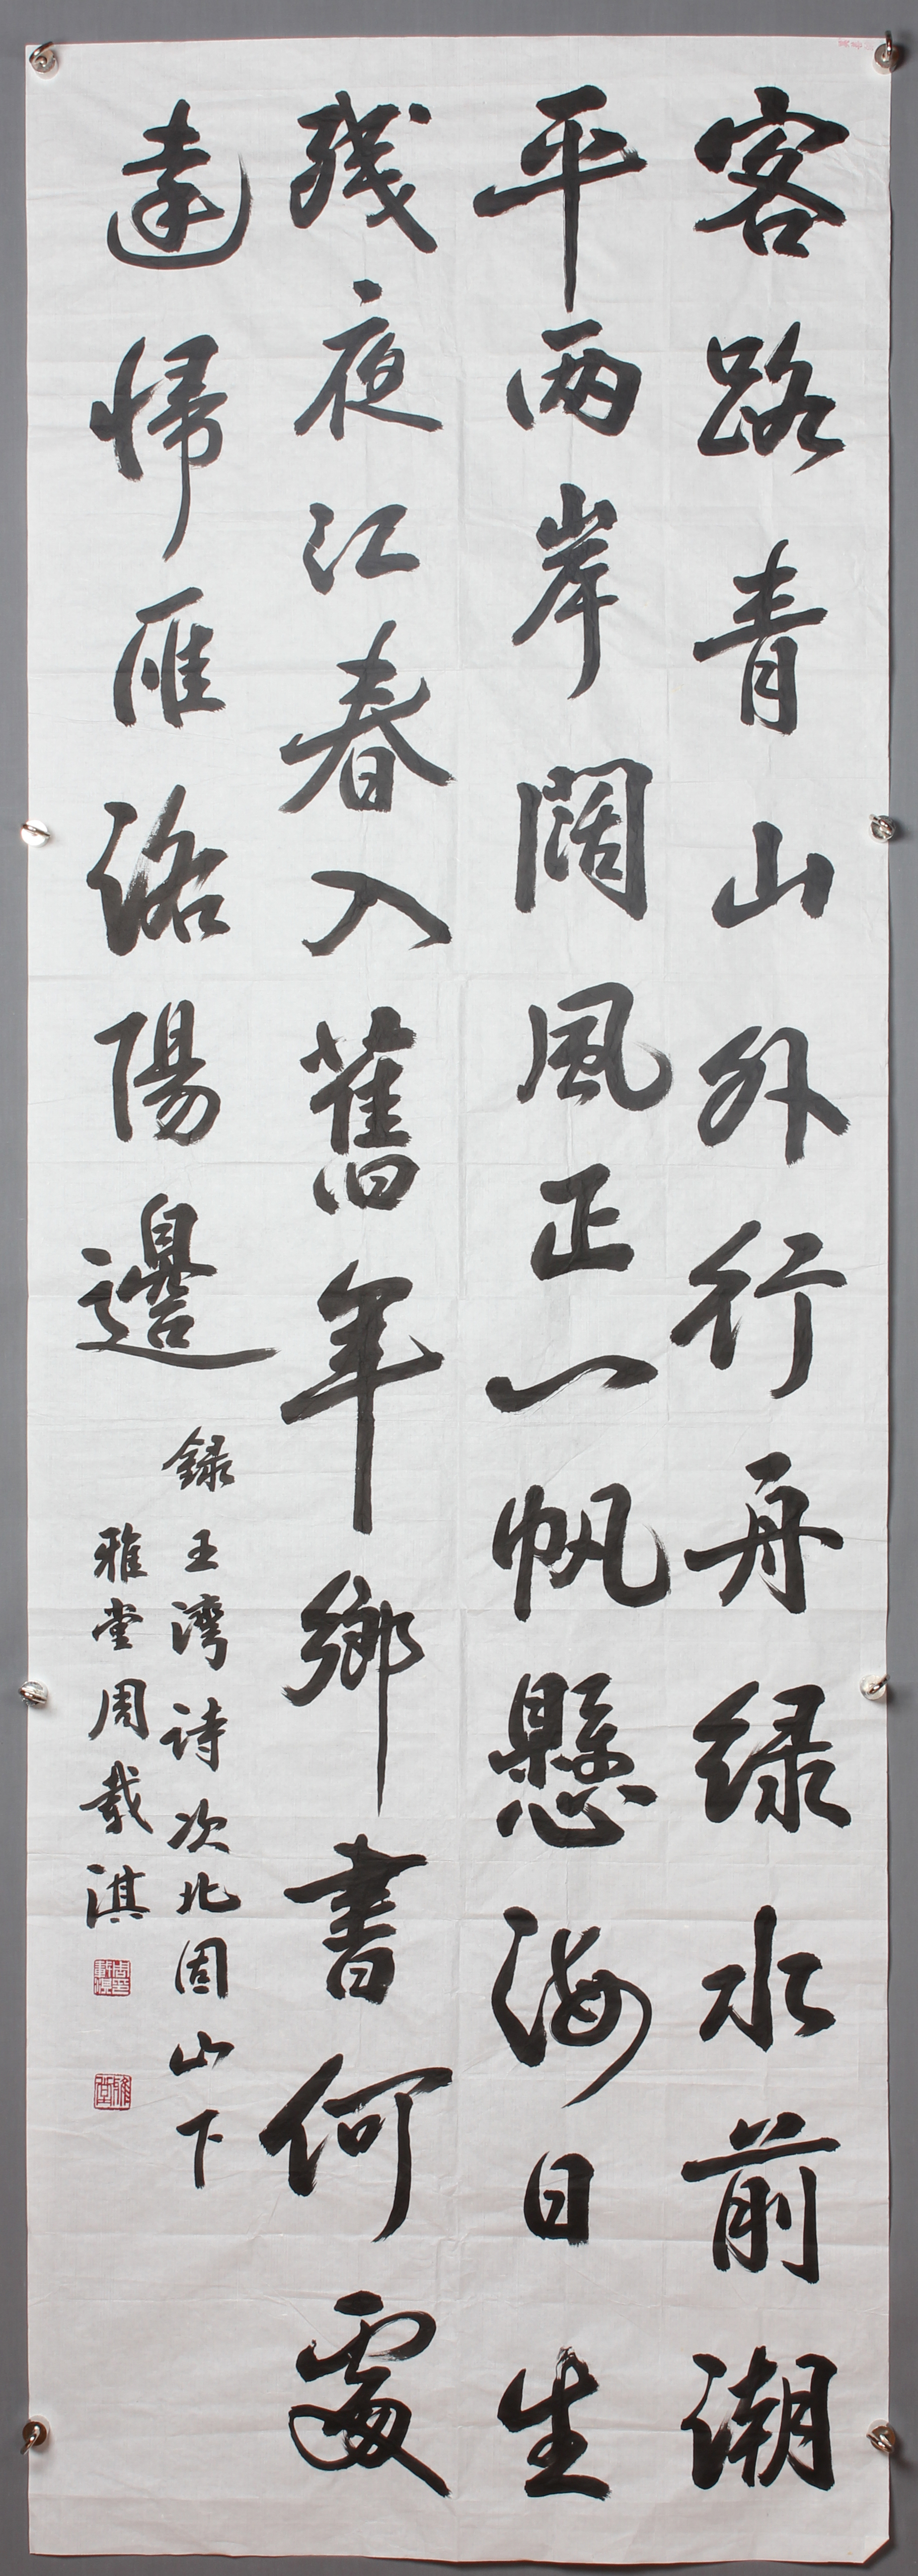 客路青山外行舟緑水前潮
平兩岸闊風正一帆懸海日生
残夜江春入舊年鄉書何處
達歸雁洛陽邊
録王湾詩次北固山下
雅堂周載淇